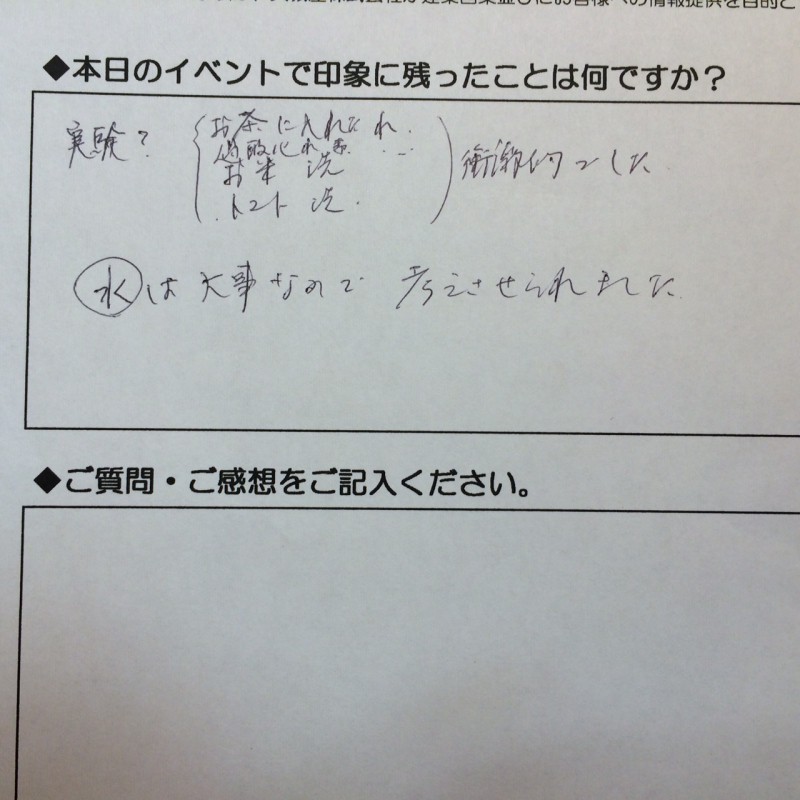 株式会社が建築営業並びにお客様への情報提供を目的と
◆本日のイベントで印象に残ったことは何ですか？
実験? お茶に入れたれ.
お米 洗
トマト 洗. 衝撃的でした
水は大事なので 考えさせられました.
◆ご質問・ご感想をご記入ください。